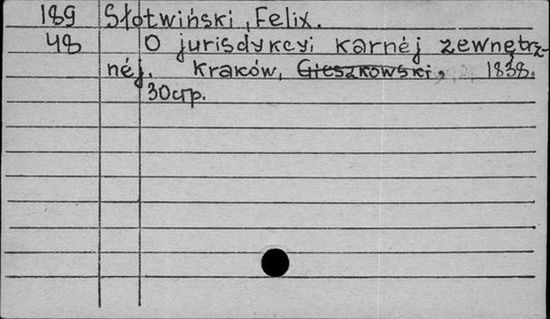 189 Słotwiński, Felix.
48 O jurisdykcyi karnéj zewnętrz-
néj. Kraków, Gieszkowski, 1838.
30 str.